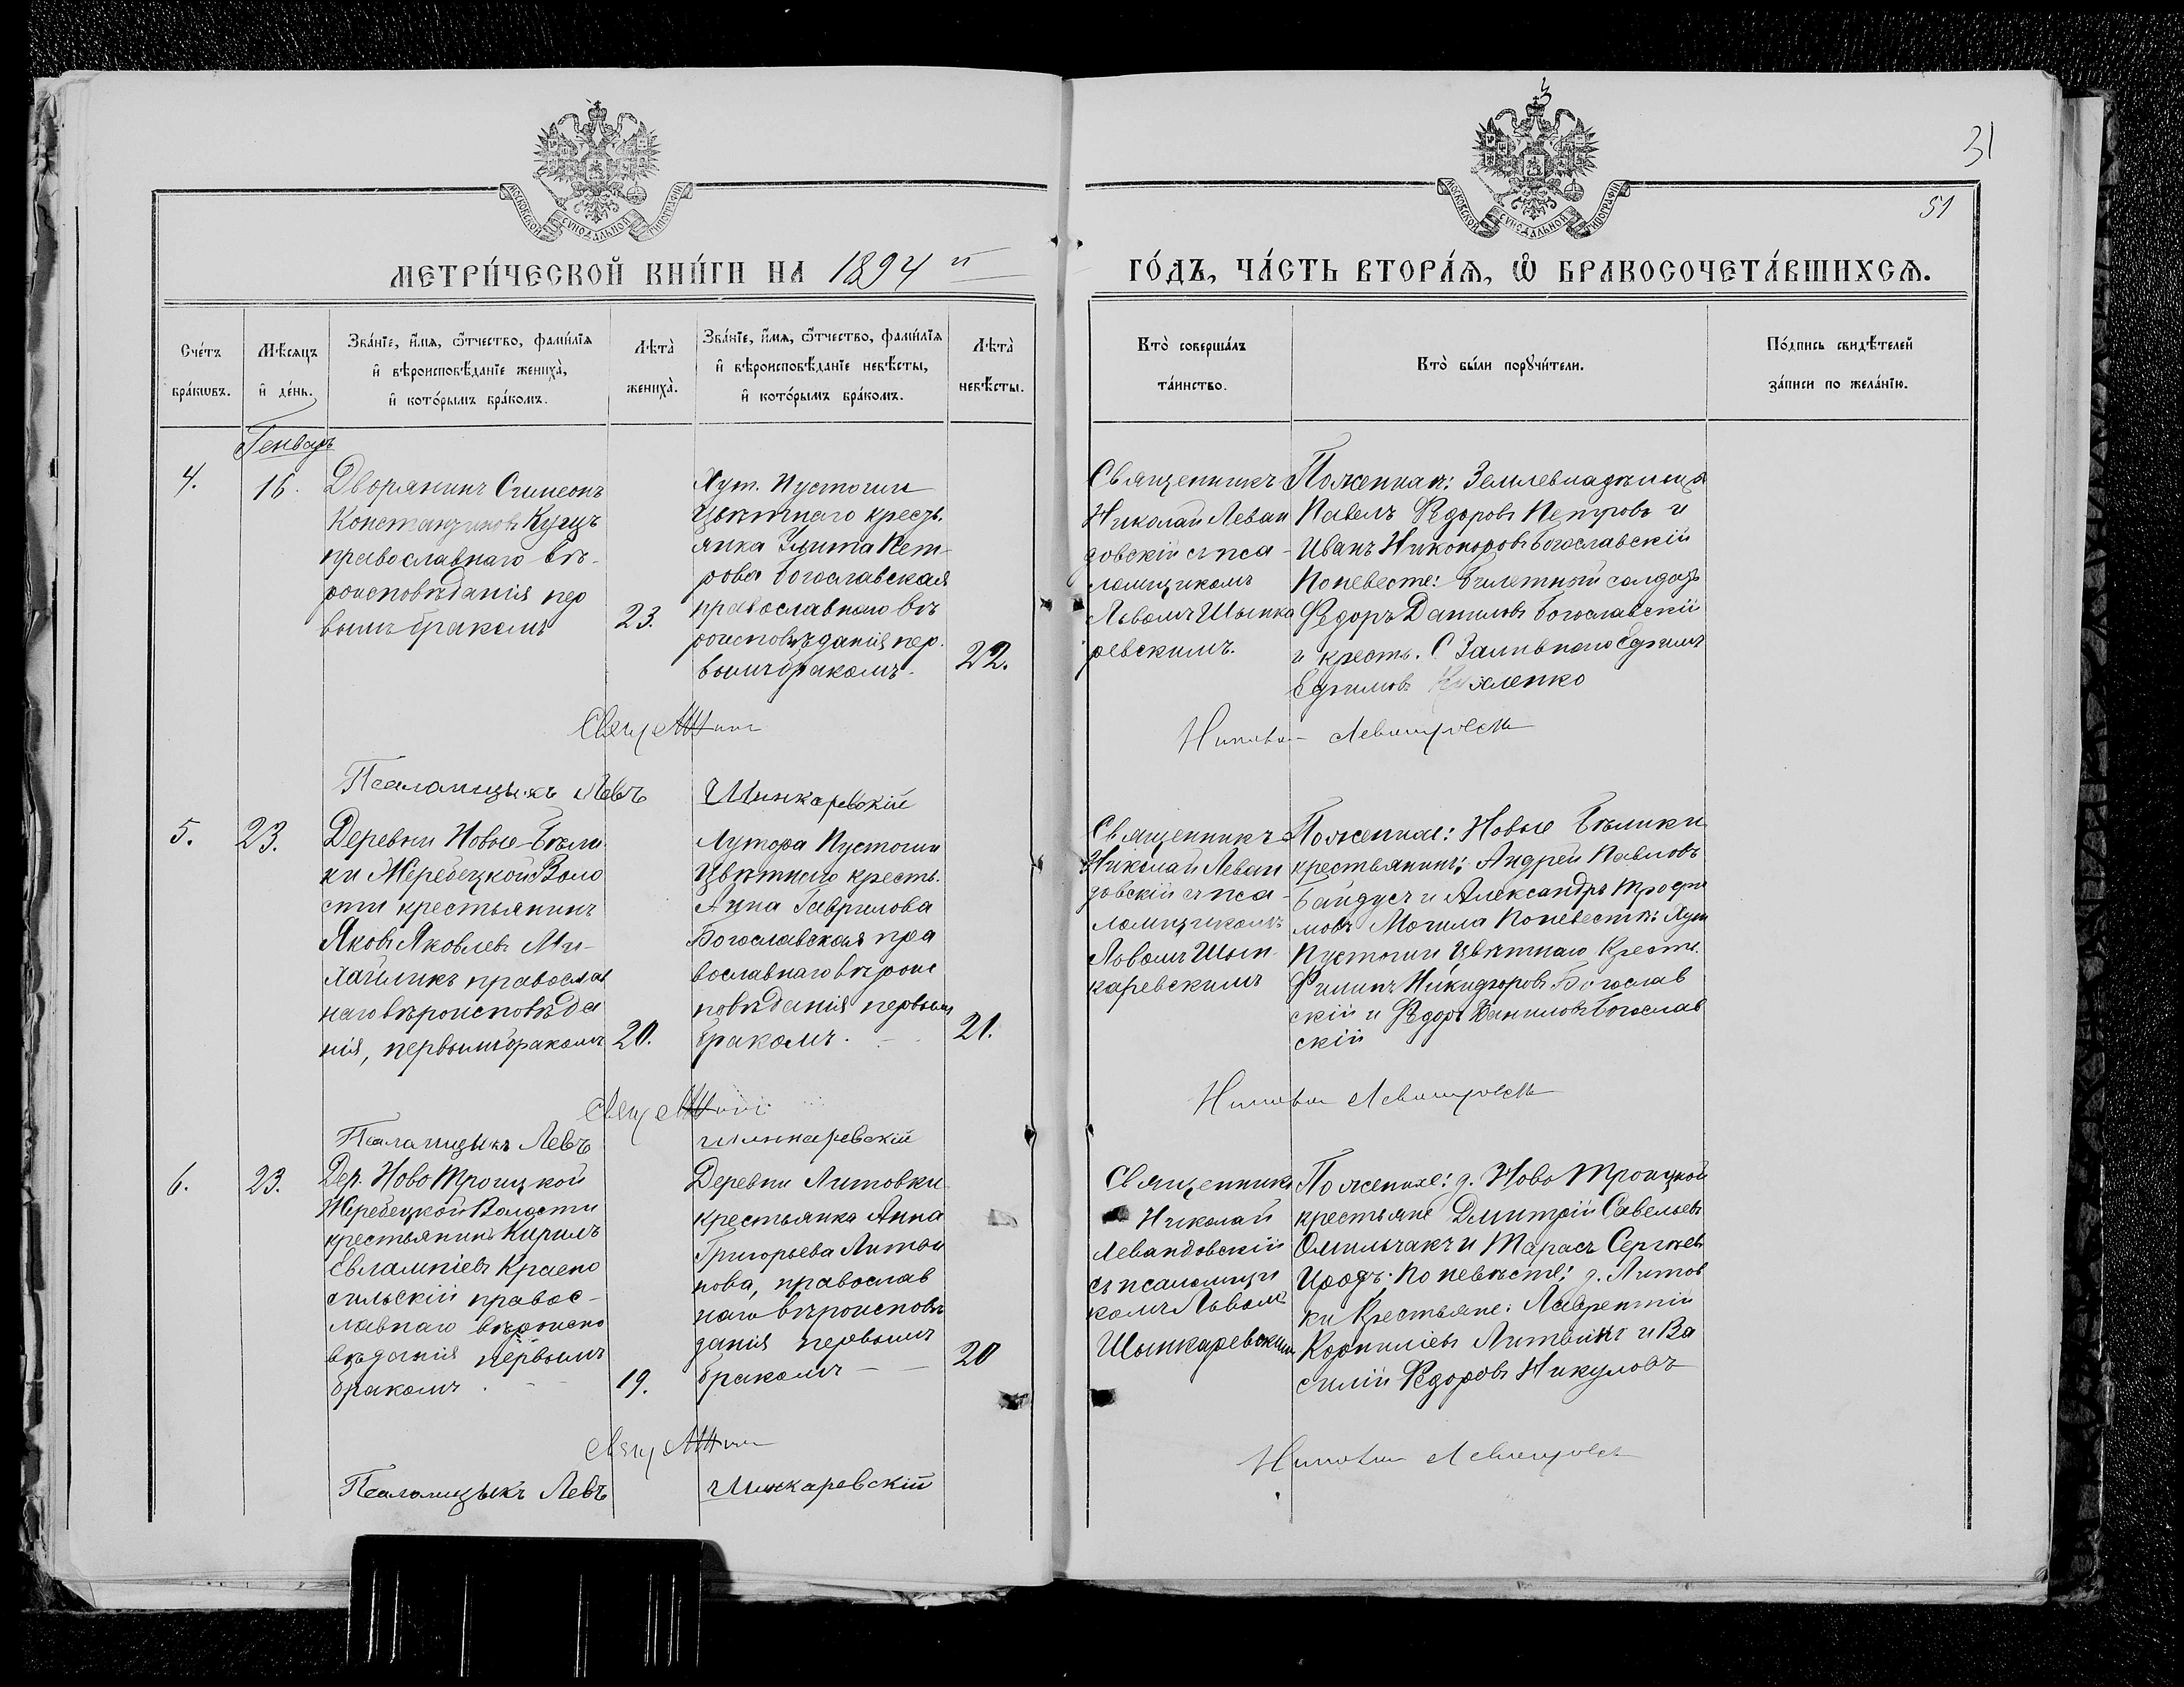 31
51
МОСКОВСКОЙ СѴНОДАЛЬНОЙ ТИПОГРАФІИ
МОСКОВСКОЙ СѴНОДАЛЬНОЙ ТИПОГРАФІИ
МЕТРИ́ЧЕСКОЙ КНИ́ГИ НА 1894 й
ГО́ДЪ, ЧА́СТЬ ВТОРА́Ѧ, Ѿ БРАКОСОЧЕТА́ВШИХСѦ.
Сче́тъ бра́кѡвъ.
Мѣ́сяцъ и҆ де́нь.
Зва́нїе, и҆́мѧ, ѻ҆́тчество, фами́лїѧ
и҆ вѣроисповѣ́данїе жениха̀,
и҆ кото́рымъ бра́комъ.
Лѣта̀ жениха̀.
Зва́нїе, и҆́мѧ, ѻ҆́тчество, фами́лїѧ
и҆ вѣроисповѣ́данїе невѣ́сты,
и҆ кото́рымъ бра́комъ.
Лѣта̀ невѣ́сты.
Кто̀ соверша́лъ
та́инство.
Кто̀ бы́ли порꙋчи́тели.
По́дпись свидѣ́телей
за́писи по жела́нїю.
Генварь
4.
16.
Дворянинъ Симеонъ
Константиновъ Куцъ
православнаго вѣ-
роисповѣданія пер
вымъ бракомъ
23.
Хут. Пустогии
Цвѣтнаго кресть.
янка Пет-
рова Богославская
православнаго вѣ
роисповѣданія пер.
вымъ бракомъ.
22.
Священникъ
Николай Леван
довскій съ пса-
ломщикомъ
Львомъ Шынка
ревскимъ.
Поженихѣ: Землевладѣлицъ
Павелъ Ѳедоровъ Петровъ и
Иванъ Никоноровъ Богославскій
Поневестѣ: Билетный солдатъ
Ѳедоръ Даниловъ Богославскій
и кресть. С. Заливного Ефимъ
Ефимовъ
Свящ
Николай Левандовскій
Псаломщикъ Левъ Шинкаревскій
5.
23.
Деревни Новые-Бѣли
ки Жеребецкой Воло
сти крестьянинъ
Яковъ Яковлевъ Ми-
хайликъ православ
наго вѣроисповѣда
нія, первымъ бракомъ
20.
Хутора Пустогии
Цвѣтнаго кресть.
Анна Гаврилова
Богославская пра
вославнаго вѣроис
повѣданія первымъ
бракомъ.
21.
Священникъ
Николай Леван
довскій съ пса-
ломщикомъ
Львомъ Шын
каревскимъ
Поженихе: Новые Бѣлики
крестьянинъ: Андрей Павловъ
Байдусъ и Александръ Трофи
мовъ Могила Поневестѣ: Хут
Пустогии Цвѣтнаго Кресть.
Филипъ Никифоровъ Богослав
скій и Ѳедоръ Даниловъ Богослав
скій
Свящ
Николай Левандовскій
Псаломщикъ Левъ Шынкаревскій
6.
23.
Дер. Ново Троицкой
Жеребецкой Волости
крестьянинъ Кирилъ
Евлампіевъ Красно
сильскій правос-
лавнаго вѣроиспо
вѣданія первымъ
бракомъ.
19.
Деревни Литовки
крестьянка Анна
Григорьева Литви
нова, православ
наго вѣроисповѣ
данія первымъ
бракомъ
20
Священникъ
Николай
Левандовскій
съ псаломщи
комъ Львомъ
Шынкаревскимъ
Поженихе: д. Ново Троицкой
крестьяне Дмитрій Савельевъ
Омильчакъ и Тарасъ Сергѣевъ
По невѣстѣ: д. Литов
ки Крестьяне: Лаврентій
Корниліевъ Литвинъ и Ва
силій Ѳедоровъ Никуловъ
Свящ
Николай Левандовскій
Псаломщыкъ Левъ Шинкаревскій